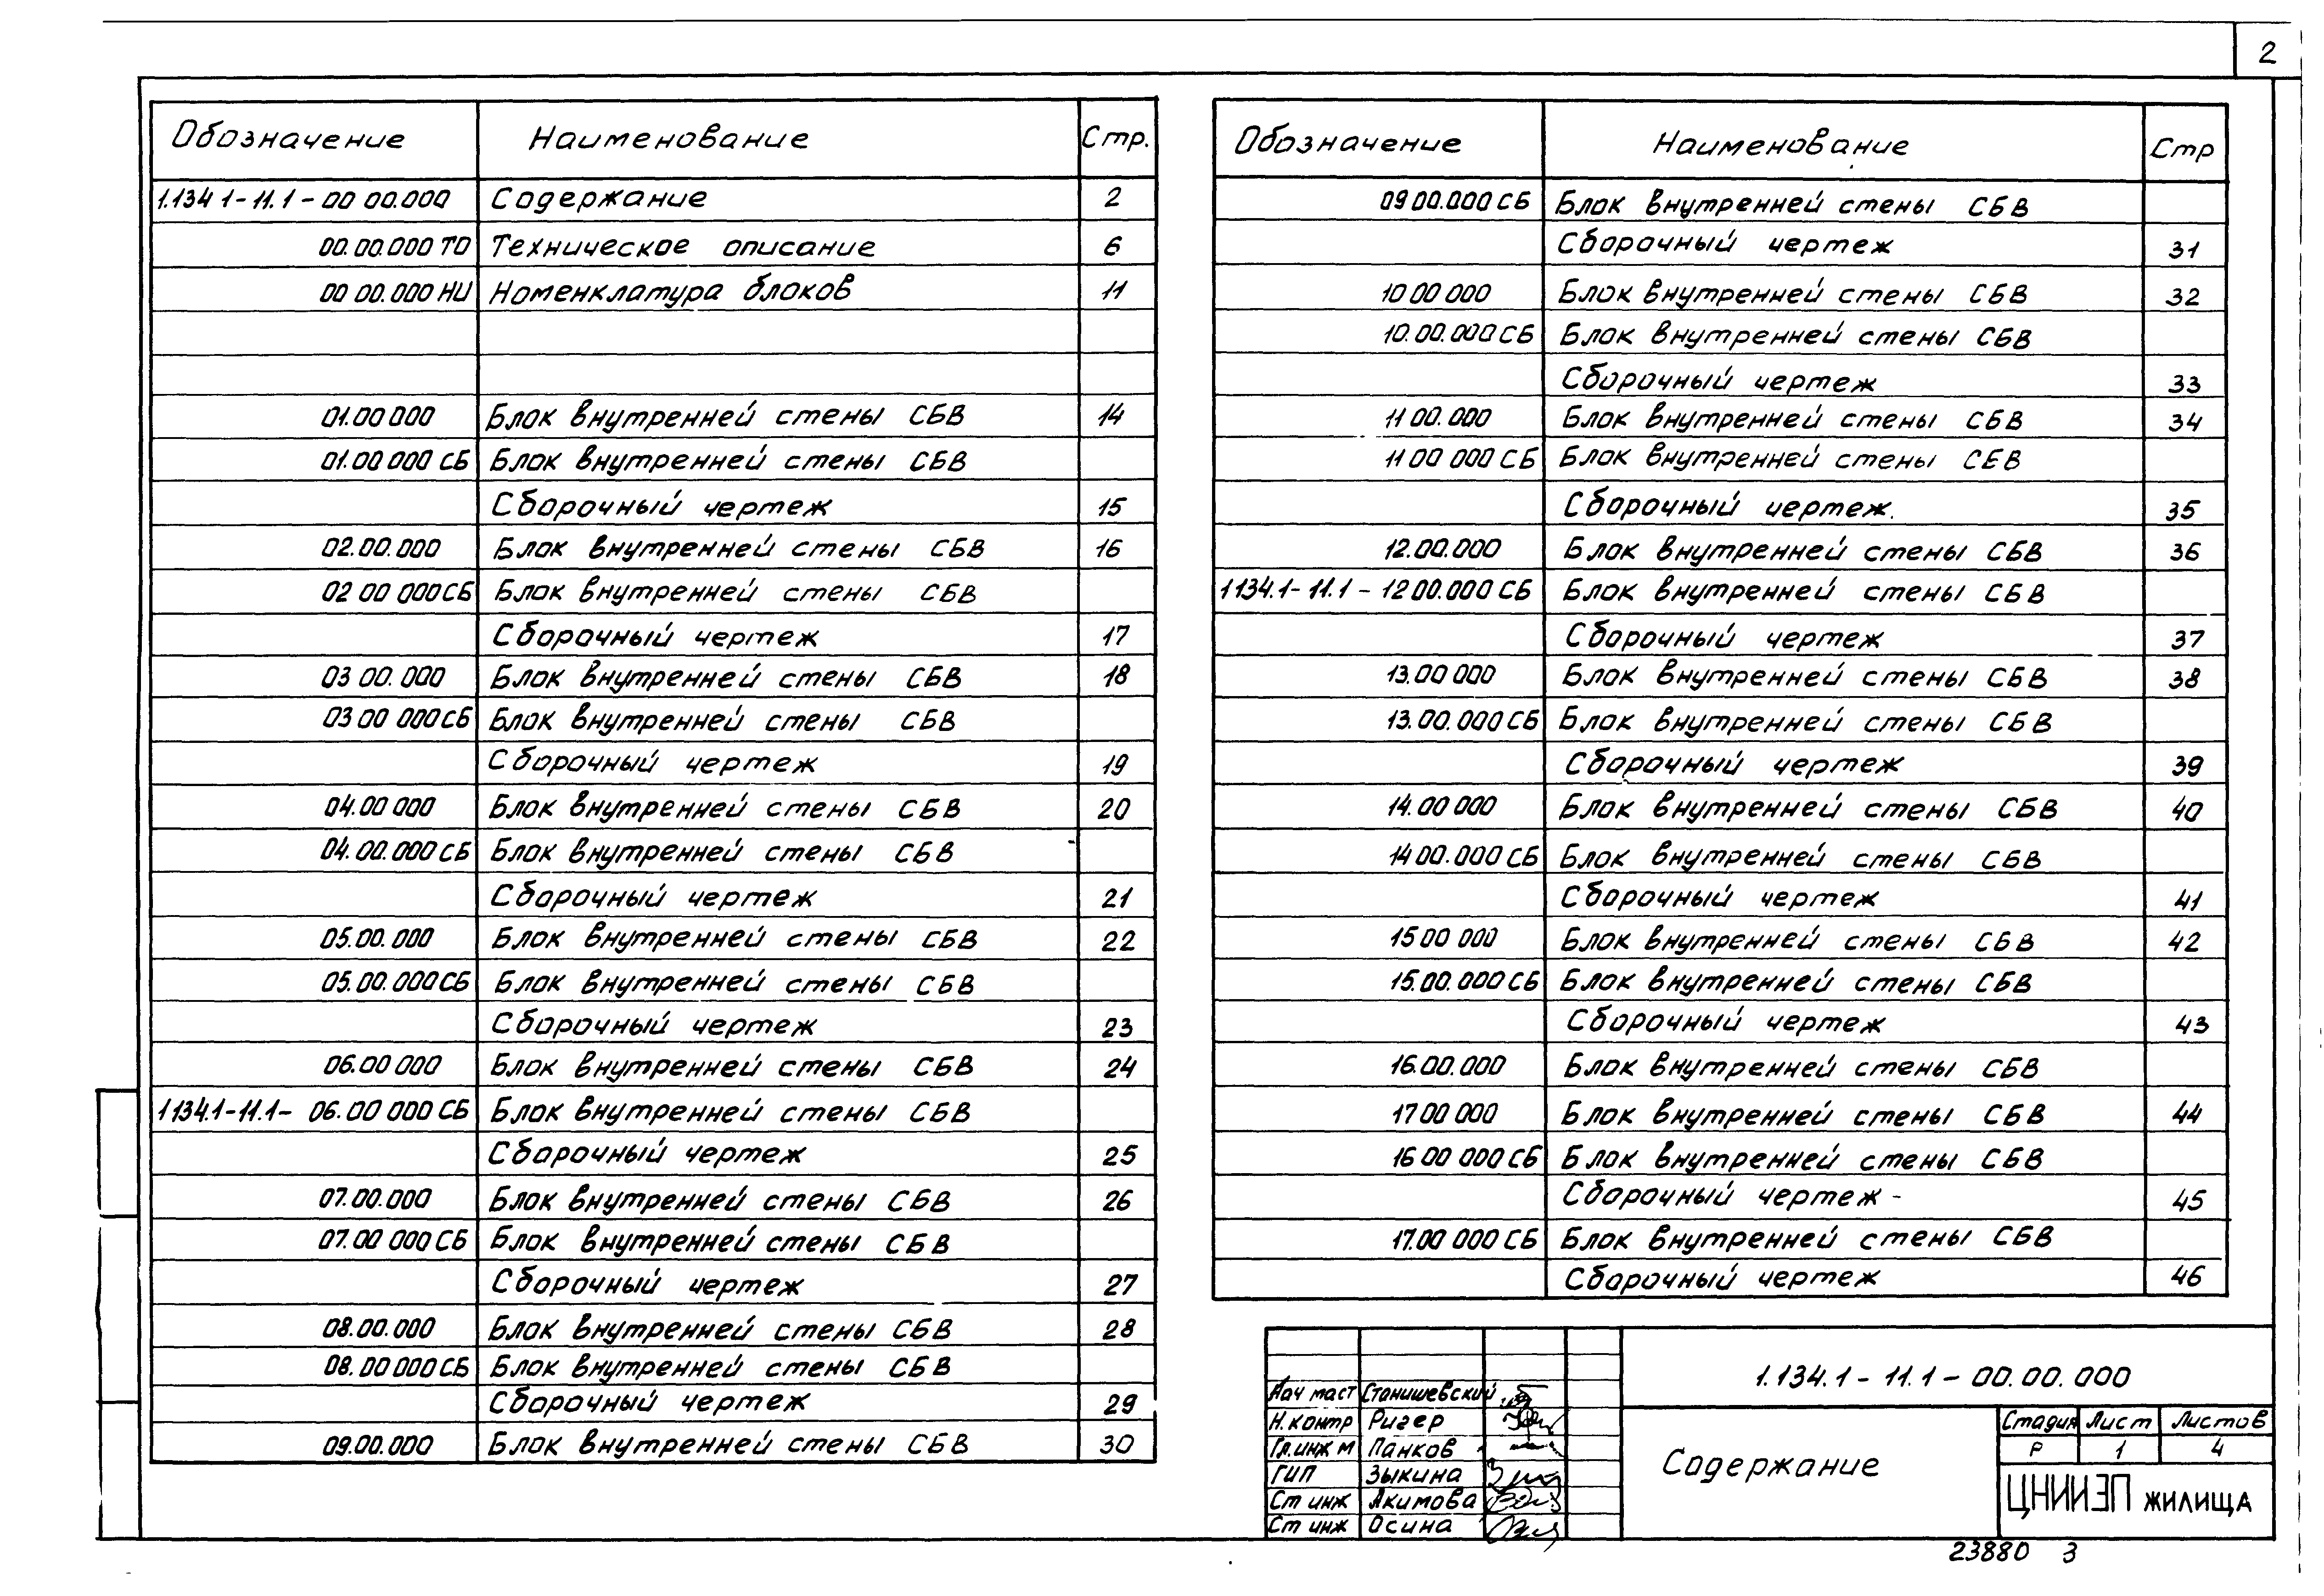 2
Обозначение Наименование Стр.
1.134 1-11.1-00 00.000 Содержание 2
00.00.000 ТО Техническое описание 6
00 00.000 НИ Номенклатура блоков 11
01.00 000 Блок внутренней стены СБВ 14
01.00 000 СБ Блок внутренней стены СБВ
Сборочный чертеж 15
02.00.000 Блок внутренней стены СБВ 16
02 00 000 СБ Блок внутренней стены СБВ
Сборочный чертеж 17
03 00. 000 Блок внутренней стены СБВ 18
03 00 000 СБ Блок внутренней стены СБВ
Сборочный чертеж 19
04.00 000 Блок внутренней стены СБВ 20
04.00.000 СБ Блок внутренней стены СБВ
Сборочный чертеж 21
05.00.000 Блок внутренней стены СБВ 22
05.00.000 СБ Блок внутренней стены СБВ
Сборочный чертеж 23
06.00 000 Блок внутренней стены СБВ 24
1 134.1-11.1- 06.00 000 СБ Блок внутренней стены СБВ
Сборочный чертеж 25
07.00.000 Блок внутренней стены СБВ 26
07.00 000 СБ Блок внутренней стены СБВ
Сборочный чертеж 27
08.00.000 Блок внутренней стены СБВ 28
08.00 000 СБ Блок внутренней стены СБВ
Сборочный чертеж 29
09.00.000 Блок внутренней стены СБВ 30
Обозначение Наименование Стр
09 00.000 СБ Блок внутренней стены СБВ
Сборочный чертеж 31
10 00 000 Блок внутренней стены СБВ 32
10.00.000 СБ Блок внутренней стены СБВ
Сборочный чертеж 33
11 00.000 Блок внутренней стены СБВ 34
11 00 000 СБ Блок внутренней стены СБВ
Сборочный чертеж. 35
12.00.000 Блок внутренней стены СБВ 36
1 134.1-11.1-12 00.000 СБ Блок внутренней стены СБВ
Сборочный чертеж 37
13.00 000 Блок внутренней стены СБВ 38
13.00.000 СБ Блок внутренней стены СБВ
Сборочный чертеж 39
14.00 000 Блок внутренней стены СБВ 40
14 00.000 СБ Блок внутренней стены СБВ
Сборочный чертеж 41
15 00 000 Блок внутренней стены СБВ 42
15.00.000 СБ Блок внутренней стены СБВ
Сборочный чертеж 43
16.00.000 Блок внутренней стены СБВ
17 00 000 Блок внутренней стены СБВ 44
16 00 000 СБ Блок внутренней стены СБВ
Сборочный чертеж - 45
17.00 000 СБ Блок внутренней стены СБВ
Сборочный чертеж 46
1.134.1-11.1-00.00.000
Нач маст Станишевский
Н.контр Ригер
Гл.инж м Панков
ГИП Зыкина
Ст инж Акимова
Ст инж Осина
Содержание
Стадия Лист Листов
Р 1 4
ЦНИИЭП жилища
23880 3